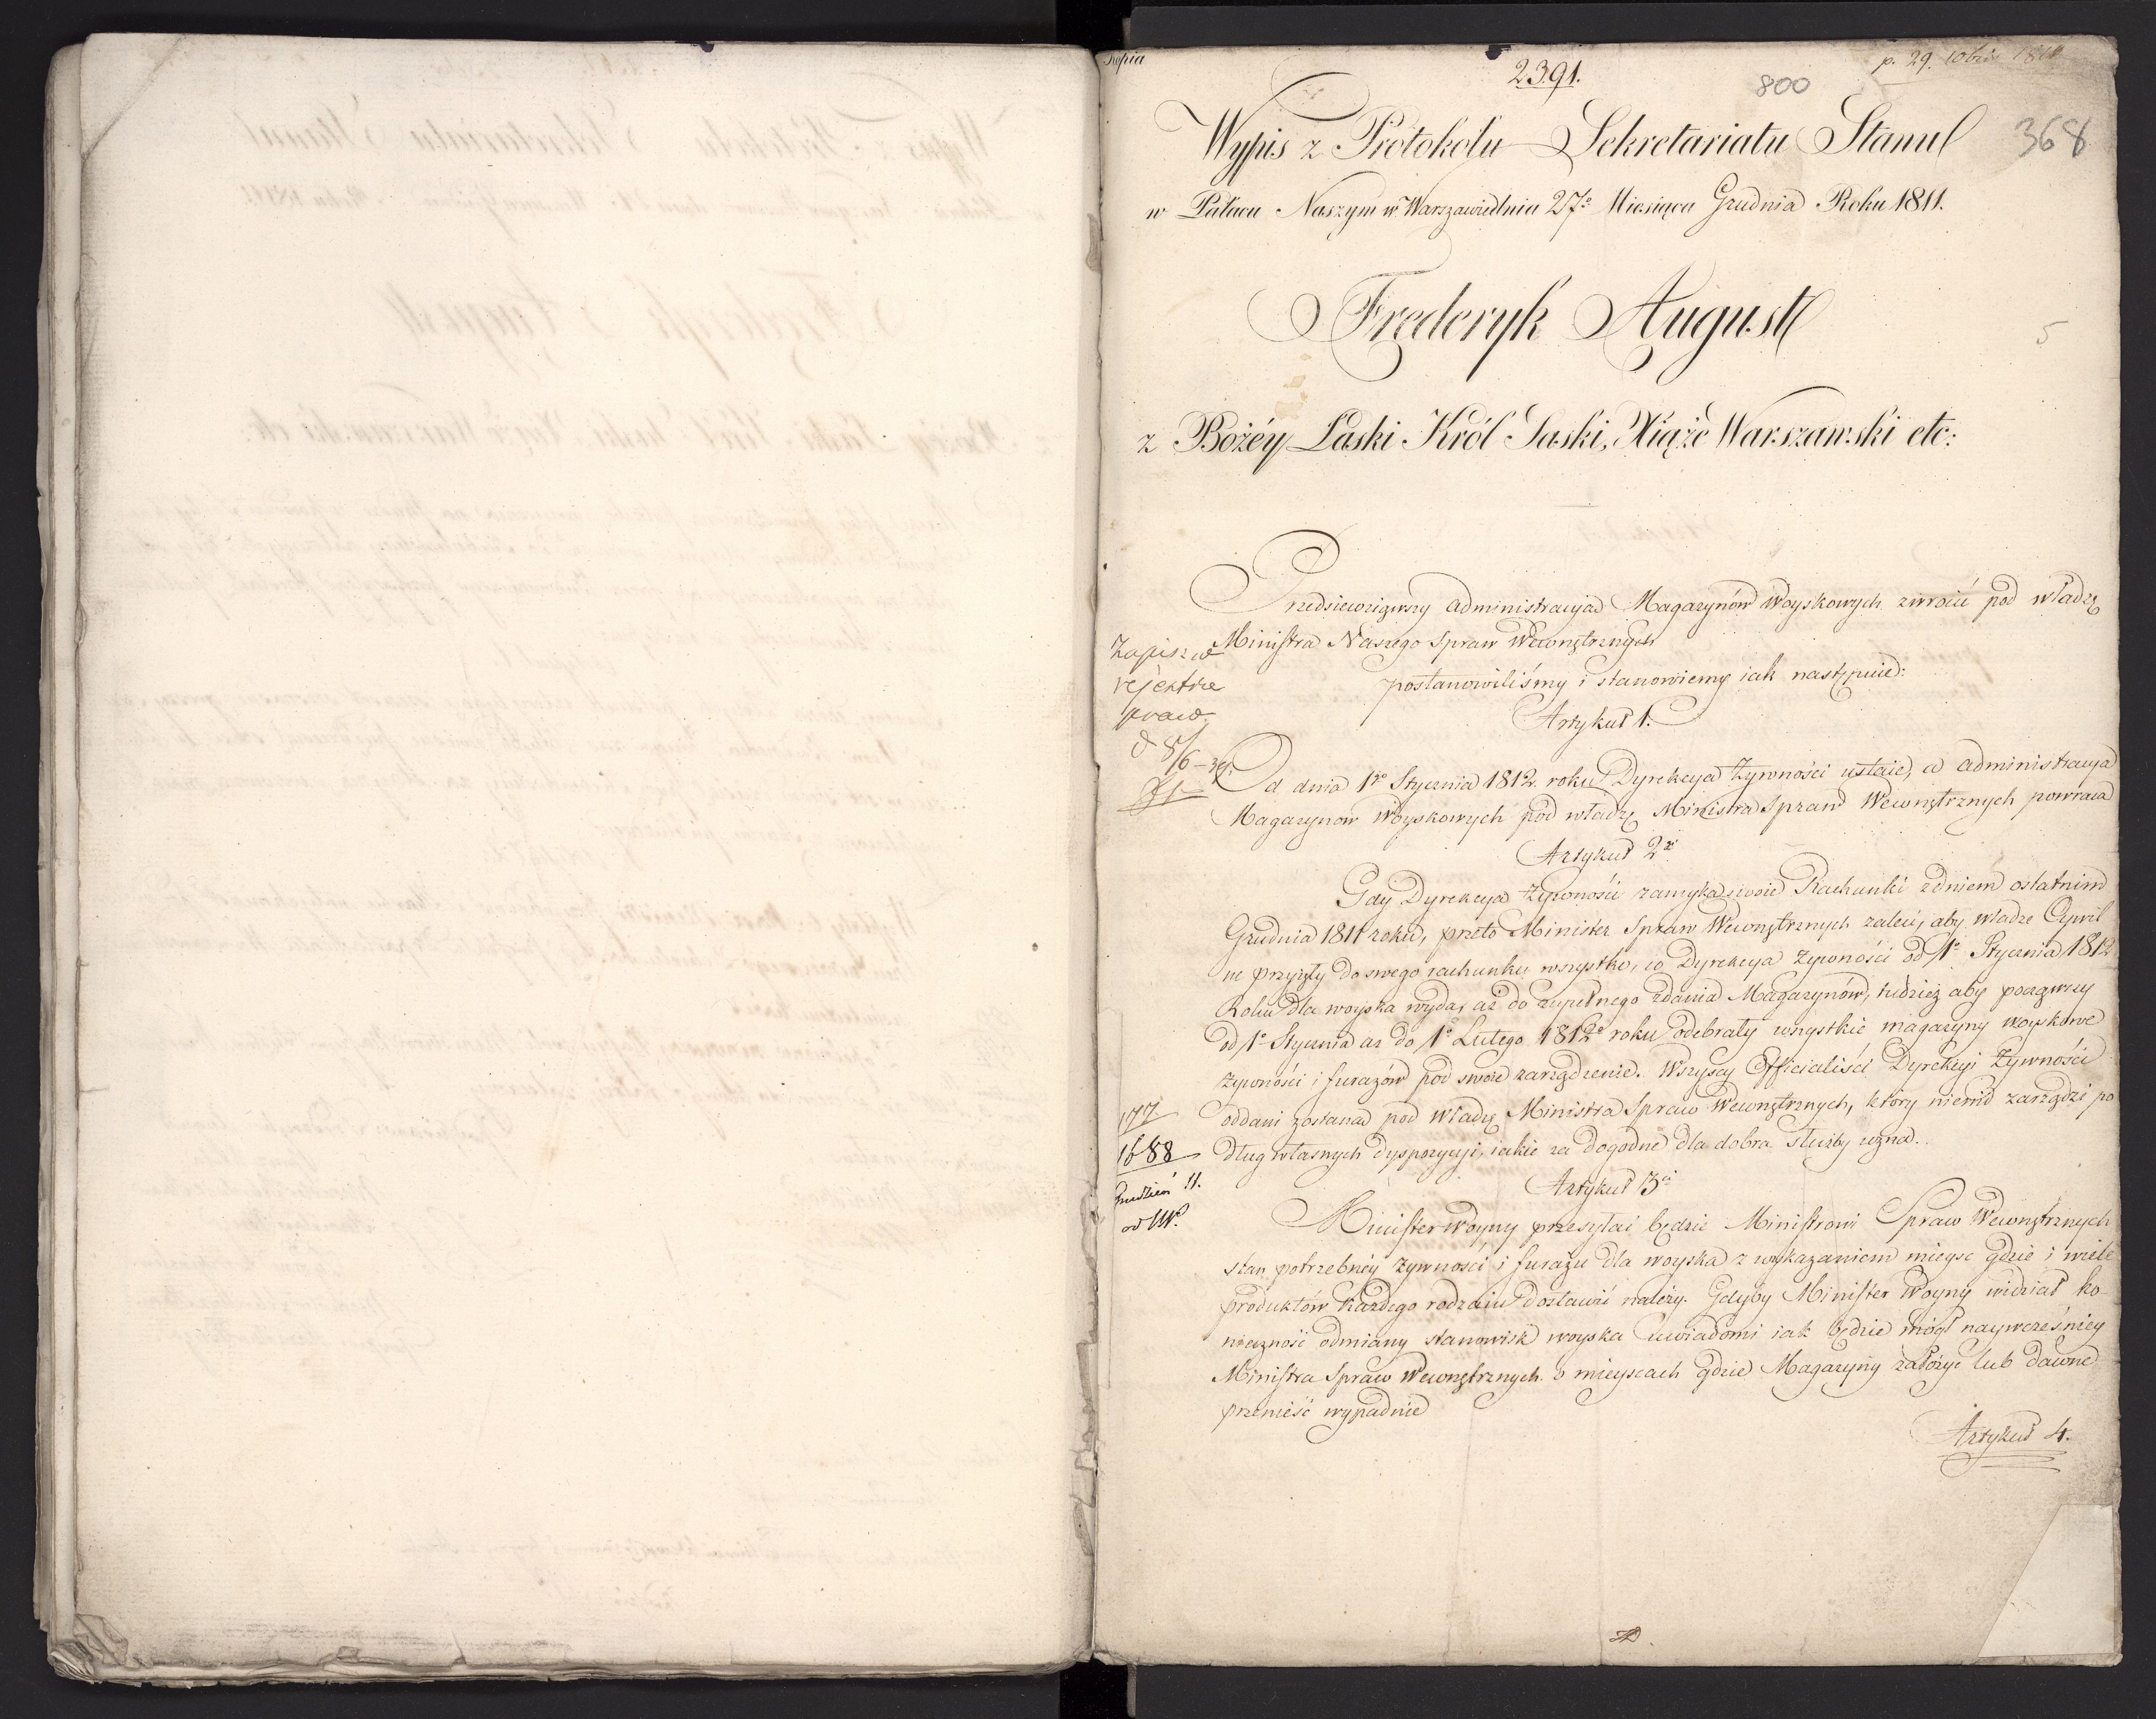 Kopia
2391.
p. 29. 10bris 1811
800
368
Wypis z Protokołu Sekretariatu Stanu
w Pałacu Naszym w Warszawie dnia 27º Miesiąca Grudnia Roku 1811.
Frederyk August
5
z Bożéy Łaski Król Saski, Xiąże Warszawski etc:
Przedsiewziąwszy administracyia Magazynów Woyskowych zwrócić pod władzę
Ministra Naszego Spraw Wewnętrznych
postanowiliśmy i stanowiemy iak następuie:
Zapis w
rejestrze
praw
Artykuł 1.
Od dnia 1go Stycznia 1812. roku Dyrekcya Żywności ustaie, a administracya
Magazynow Woyskowych pod władzę Ministra Spraw Wewnętrznych powraca
Artykuł 2gi
Gdy Dyrekcya żywności zamyka swoie Rachunki z dniem ostatnim
Grudnia 1811 roku, przeto Minister Spraw Wewnętrznych zaleci, aby władze Cywil
ne przyięły do swego rachunku wszystko, co Dyrekcya żywności od 1º Stycznia 1812
Roku dla woyska wyda, aż do zupełnego zdania Magazynów, tudzież aby począwszy
od 1º Stycznia aż do 1º Lutego 1812º roku odebrały wszystkie magazyny woyskowe
żywności i furażów pod swoie zarządzenie. Wszyscy Officialiści Dyrekcyi Żywności
oddani zostaną pod władzę Ministra Spraw Wewnętrznych, ktory niemi zarządzi po
dług własnych dyspozycyi, iakie za dogodne dla dobra służby uzna.
177
1688
Grudzień 11.
od W.
Artykuł 3ci
Minister Woyny przesyłać będzie Ministrowi Spraw Wewnętrznych
stan potrzebnéy żywności i furażu dla woyska z wykazaniem mieysc gdzie i wiele
produktów każdego rodzaiu dostawić należy. Gdyby Minister Woyny widział ko-
nieczność odmiany stanowisk woyska uwiadomi iak będzie mógł naywcześniéy
Ministra Spraw Wewnętrznych o mieyscach gdzie Magazyny założyć lub dawne
przenieść wypadnie
Artykuł 4.